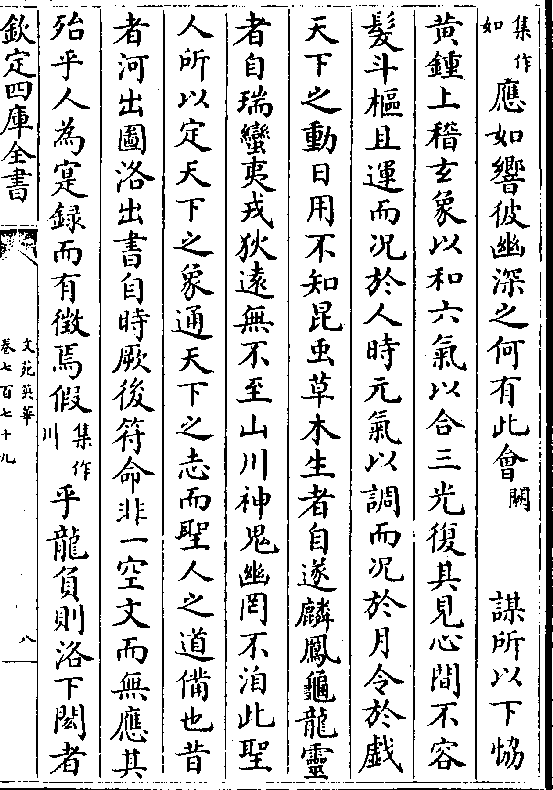 集作如應如響彼幽深之何有此會闕 謀所以下恊
黃鍾上稽玄象以和六氣以合三光復其見心間不容
髮斗樞且運而况於人時元氣以調而况於月令於戲
天下之動日用不知昆虫草木生者自遂麟鳳龜龍靈
者自瑞蠻夷戎狄遠無不至山川神鬼幽罔不洎此聖
人所以定天下之象通天下之志而聖人之道備也昔
者河出圖洛出書自時厥後符命非一空文而無應其
殆乎人為寔録而有徵焉假集作川乎龍負則洛下閎者
欽定四庫全書
文苑英華
卷七百七十九
八